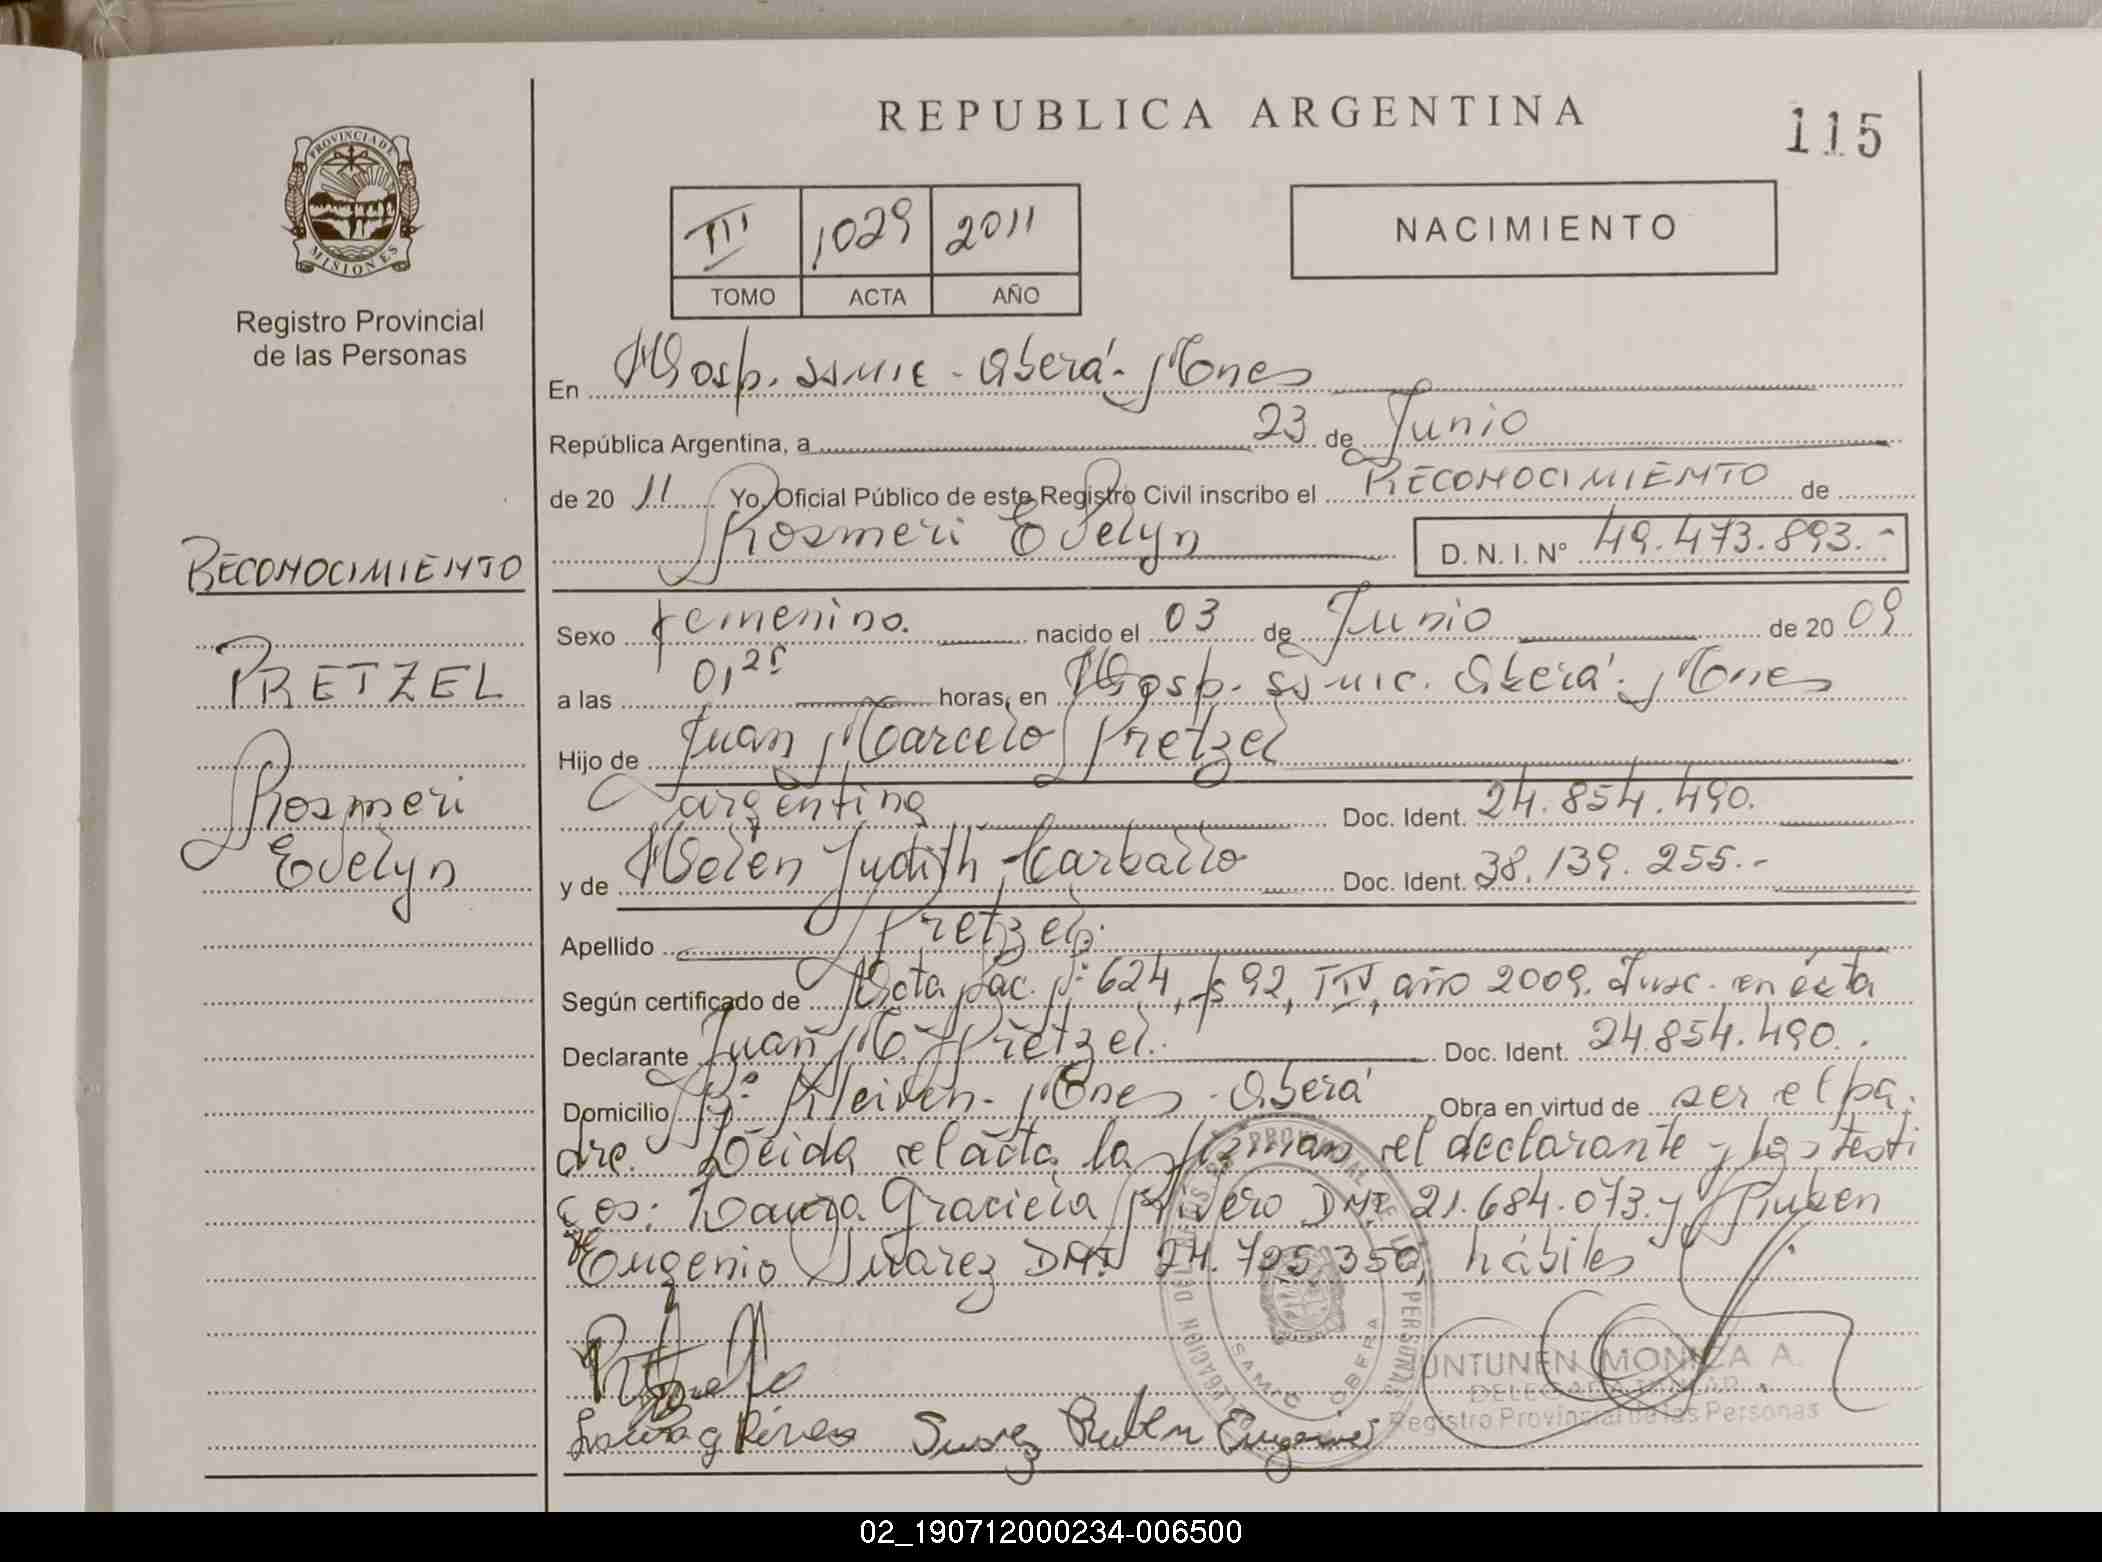 REPUBLICA ARGENTINA
115
PROVINCIA DE
MISIONES
Registro Provincial
de las Personas
III 1029 2011
TOMO ACTA AÑO
NACIMIENTO
En Hosp. SAMIC - Oberá - Mnes
República Argentina, a 23 de Junio
de 20 11 Yo, Oficial Público de este Registro Civil inscribo el RECONOCIMIENTO de
Rosmeri Evelyn D. N. I. N° 49.473.893.-
RECONOCIMIENTO
PRETZEL
Rosmeri
Evelyn
Sexo femenino. nacido el 03 de Junio de 20 09
a las 0,25 horas, en Hosp. SAMIC. Oberá. Mnes
Hijo de Juan Marcelo Pretzel
argentina Doc. Ident. 24.854.490.
y de Helen Judith Carballo Doc. Ident. 38.139.255.-
Apellido Pretzel.
Según certificado de Nota Nac. N° 624, fs 92, año 2009. Insc. en ésta
Declarante Juan M. Pretzel. Doc. Ident. 24.854.490.
Domicilio B° Mnes - Oberá Obra en virtud de ser el pa
dre. Leida el acta la firman el declarante y los testi
gos: Laura Graciela Rivero DNI 21.684.073 y Ruben
Eugenio Suarez DNI. 24. 350, hábiles
DELEGACION DE REGISTRO PROVINCIAL DE LAS PERSONAS
SAMIC OBERA
UNTUNEN MONICA A.
DELEGADA TITULAR
Registro Provincial de las Personas
Suarez Ruben Eugenio
02_190712000234-006500